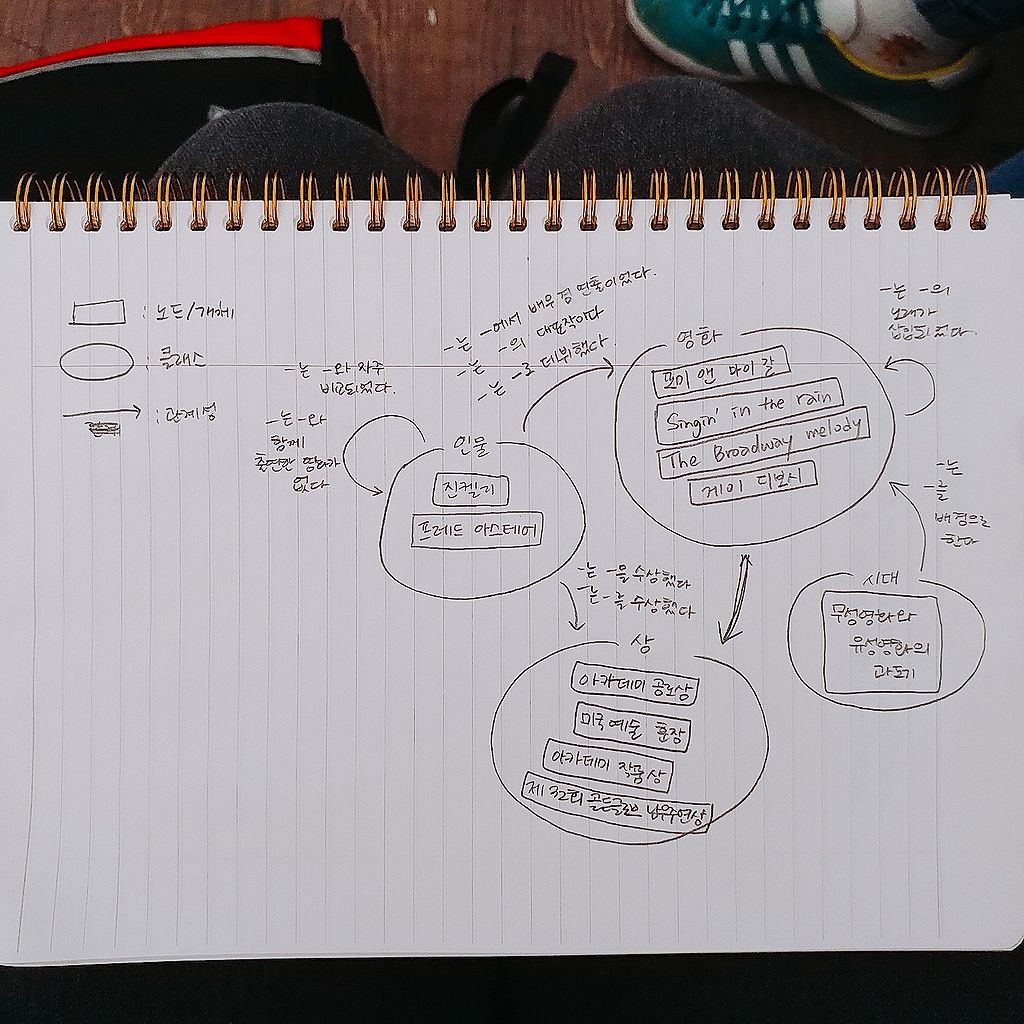 : 노드/개체
: 클래스
: 관계성
-는 -와 자주
비교되었다.
-는 -와
함께
출연한 영화가
없다
-는 -에서 배우 겸 연출이었다.
-는 -의 대표작이다
-는 -로 데뷔했다
-는 -의
노래가
삽입되었다.
영화
포미 앤 마이 갈
Singin' in the rain
The Broadway melody
게이 디보시
인물
진켈리
프레드 아스테어
-는
-를
배경으로
한다
시대
무성영화와
유성영화의
과도기
-는 -을 수상했다
-는 -을 수상했다
상
아카데미 공로상
미국예술 훈장
아카데미 작품상
제 32회 골든글로브 남우주연상